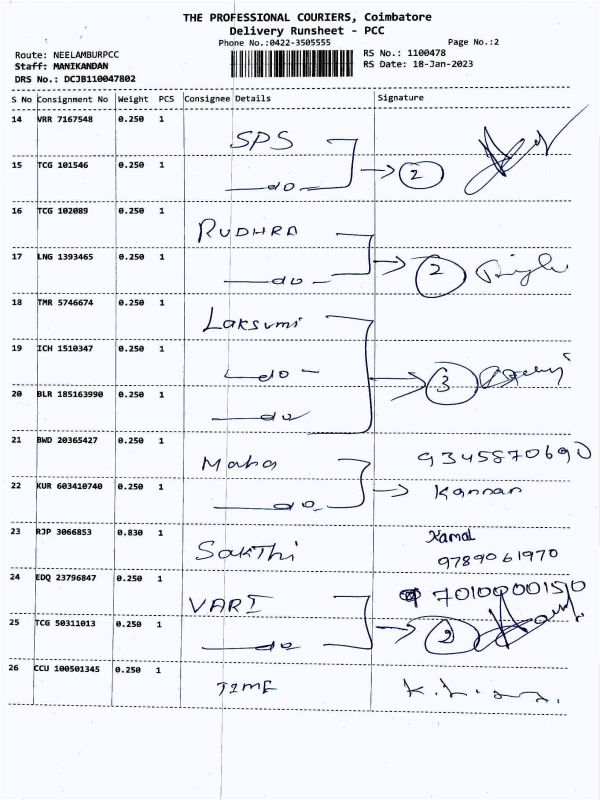 THE PROFESSIONAL COURIERS, Coimbatore
Delivery Runsheet - PCC
Phone No.:0422-3505555 Page No.:2
Route: NEELAMBURPCC RS No.: 1100478
Staff: MANIKANDAN RS Date: 18-Jan-2023
DRS No.: DCJB110047802
S No Consignment No Weight PCS Consignee Details Signature
14 VRR 7167548 0.250 1
SPS
15 TCG 101546 0.250 1
do 2
16 TCG 102089 0.250 1
RUDHRA
17 LNG 1393465 0.250 1
do 2
18 TMR 5746674 0.250 1
Laksumi
19 ICH 1510347 0.250 1
do
20 BLR 185163990 0.250 1 3
do
21 BWD 20365427 0.250 1
Maha 9345870690
22 KUR 603410740 0.250 1 Kannan
do
23 RJP 3066853 0.830 1 Kamal
Sakthi 9789061970
24 EDQ 23796847 0.250 1
VARI
25 TCG 50311013 0.250 1
do 2
26 CCU 100501345 0.250 1
TIME